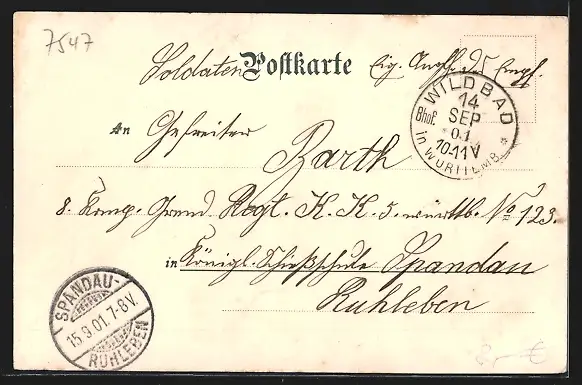 7547
Soldaten Postkarte Eig. Angel. d. Empf.
WILDBAD
14
Bhof. SEP
01
10-11 V
in WÜRTTEMB.
An Gefreiter
Barth
8. Komp. Grend. Regt. K. K. 5. württb. No 123.
in Königl. Schießschule Spandau
Ruhleben
SPANDAU-
15.9.01.7-8V.
RUHLEBEN
8,- €